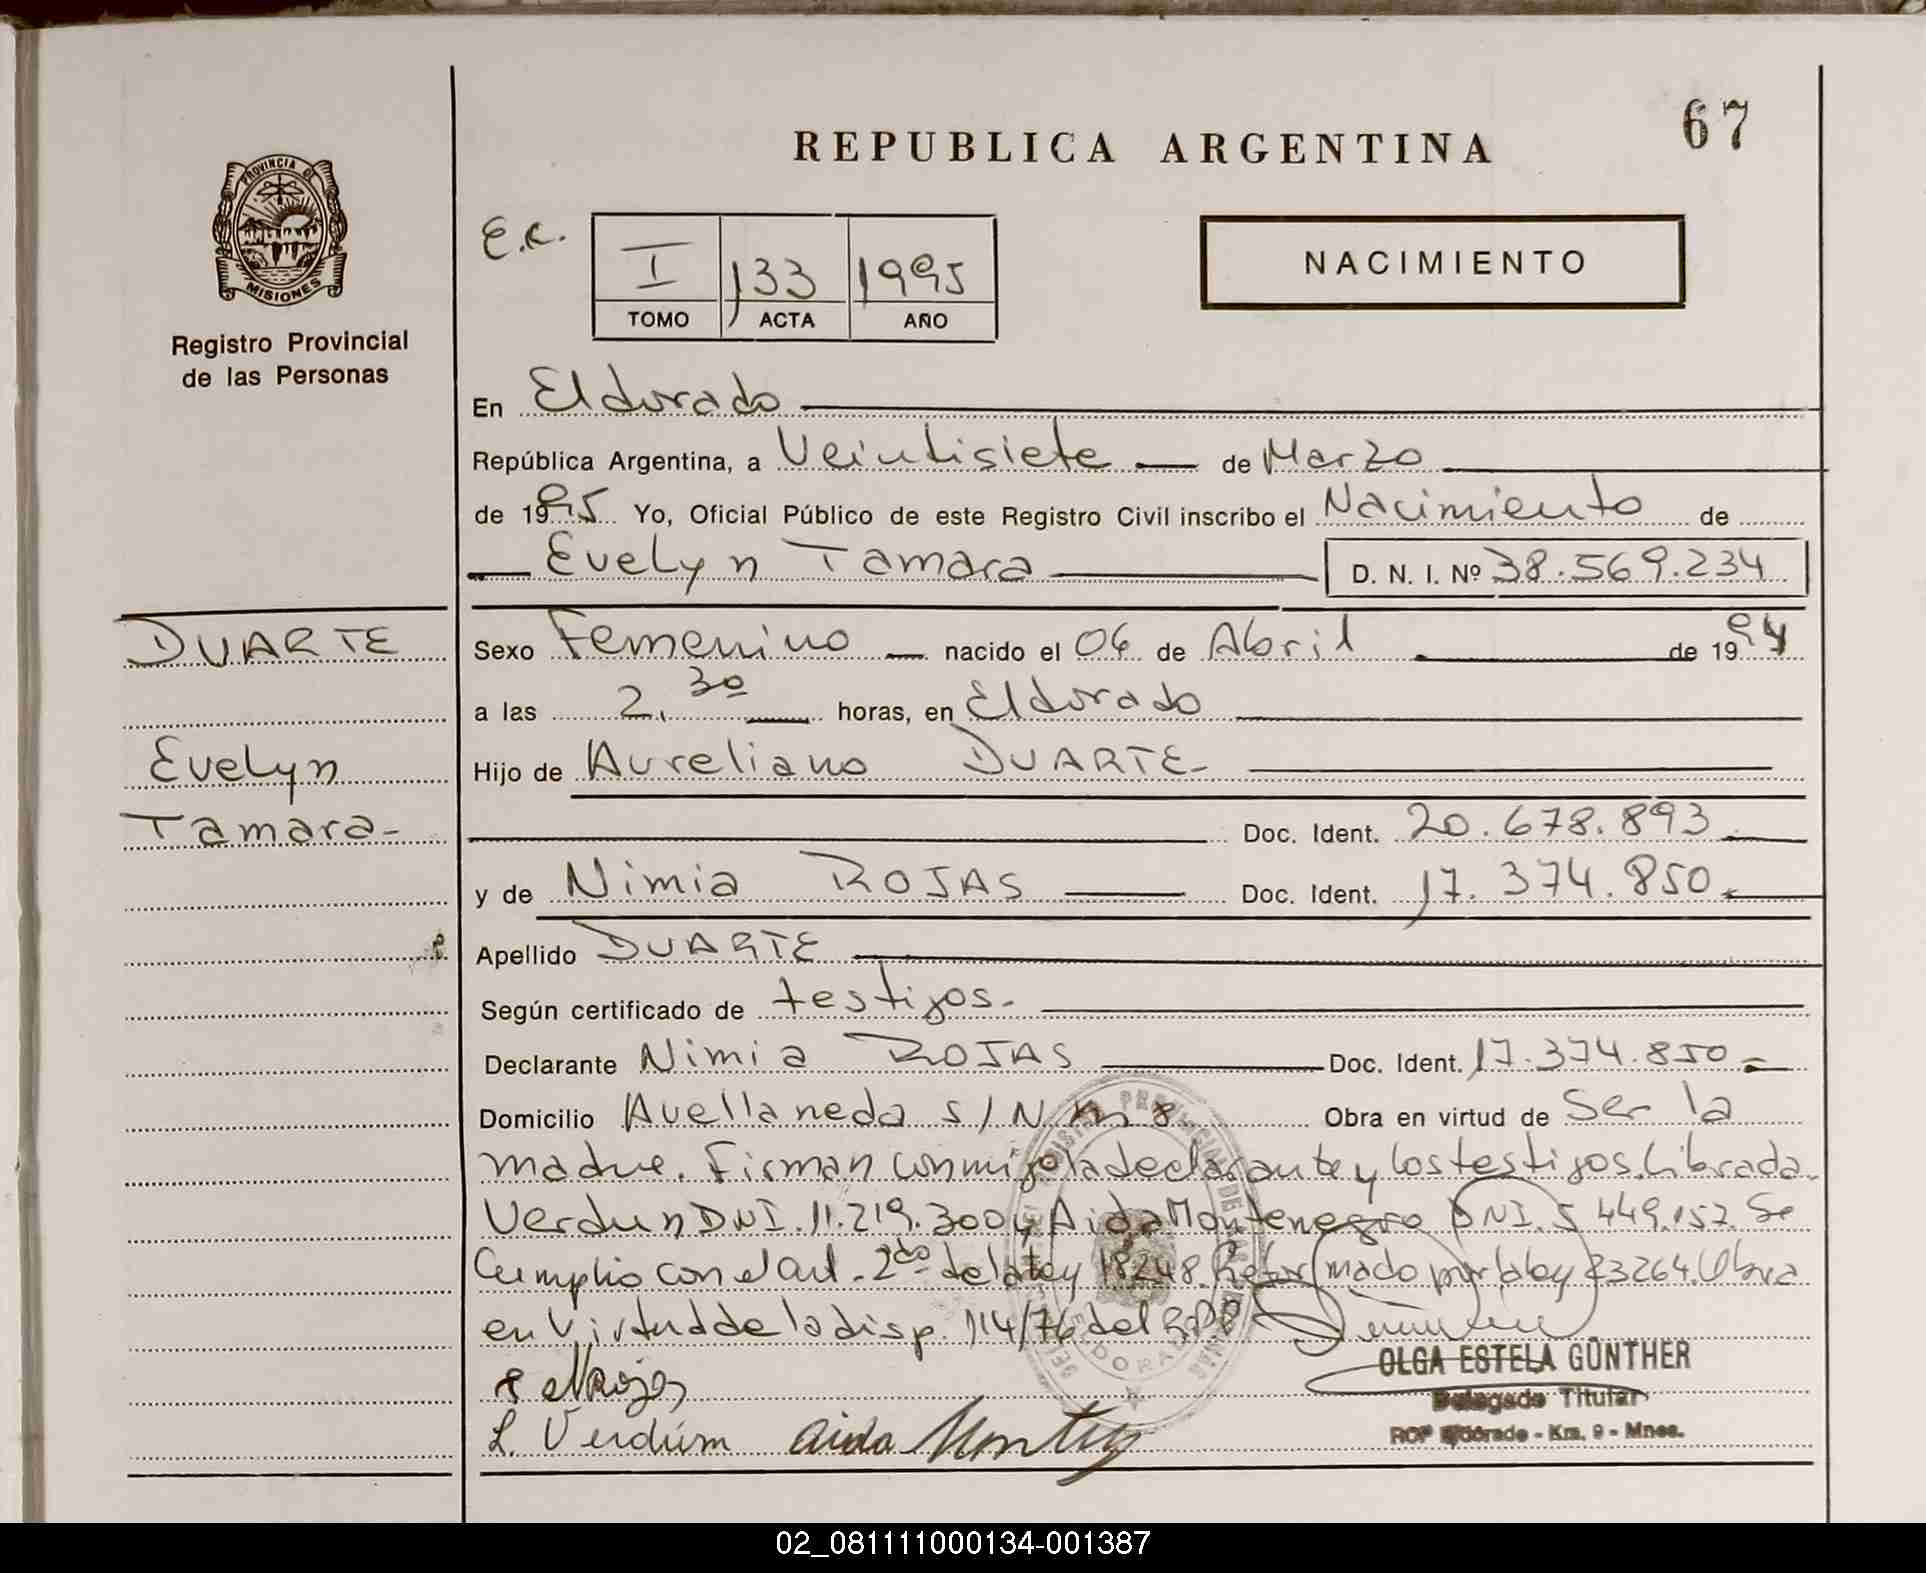 67
REPUBLICA ARGENTINA
PROVINCIA DE
MISIONES
Registro Provincial
de las Personas
E.C.
I 133 1995
TOMO ACTA AÑO
NACIMIENTO
En Eldorado
República Argentina, a Veintisiete de Marzo
de 1995 Yo, Oficial Público de este Registro Civil inscribo el Nacimiento de
Evelyn Tamara D. N. I. Nº 38.569.234
DUARTE
Evelyn
Tamara-
Sexo Femenino nacido el 06 de Abril de 1994
a las 2,30 horas, en Eldorado
Hijo de Aureliano DUARTE-
Doc. Ident. 20.678.893
y de Nimia ROJAS Doc. Ident. 17.374.850
Apellido DUARTE
Según certificado de testigos.
Declarante Nimia ROJAS Doc. Ident. 17.374.850
Domicilio Avellaneda s/N 8 Obra en virtud de Ser la
madre. Firman conmigo la declarante y los testigos. Librada
Verdun DNI. 11.219.300 y Aida Montenegro DNI. 5 449.157. Se
Cumplio con el art. 2do de la ley 18248 Reformado por la ley 23264. Obra
en Virtud de la disp. 114/76 del R.P.P
NRojas
L. Verdúm Aida
OLGA ESTELA GÜNTHER
Delegado Titular
RCP Eldorado - Km. 9 - Mnes.
02_081111000134-001387